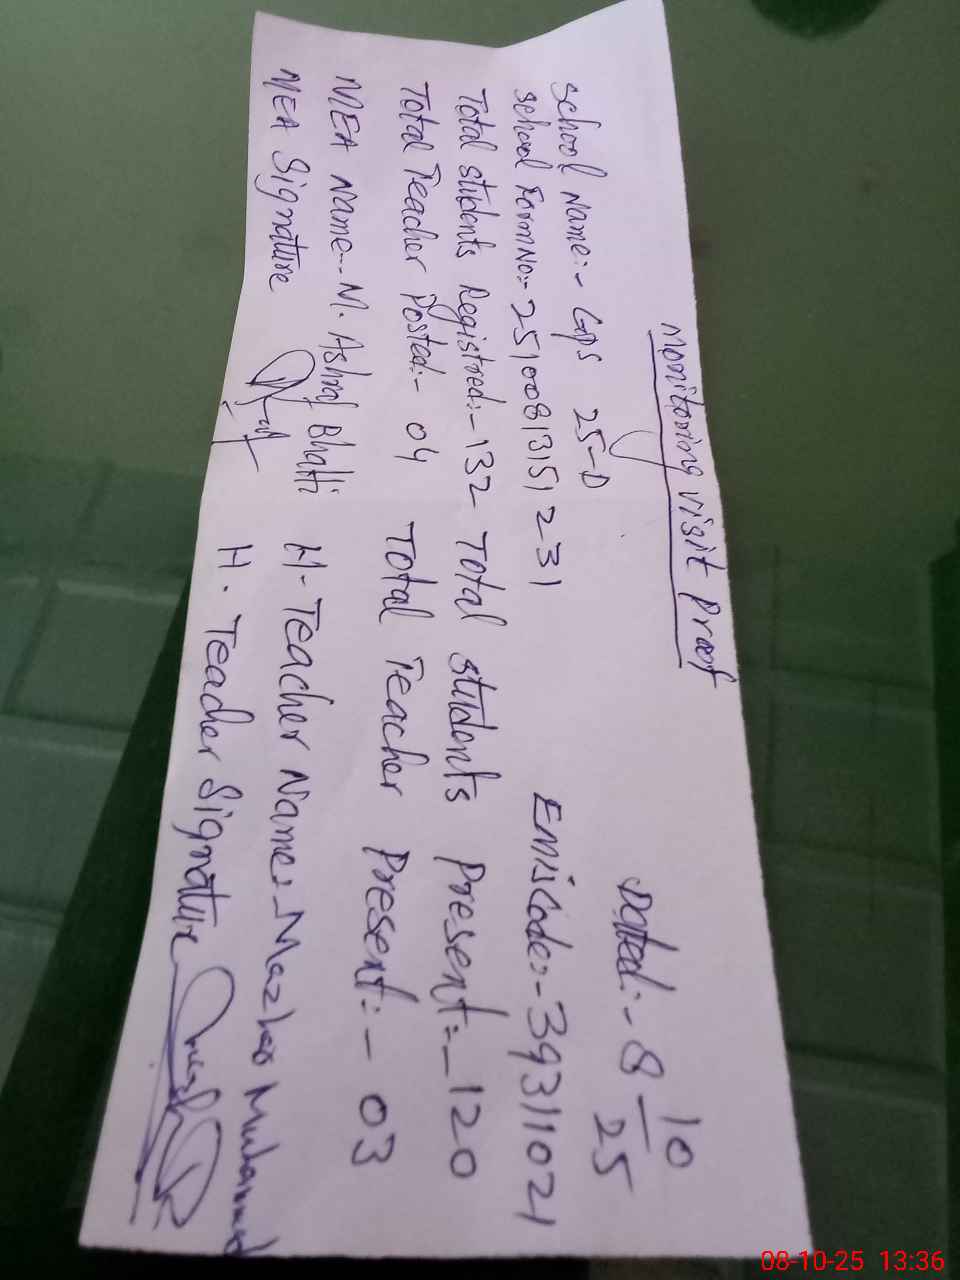 Monitoring visit Proof
Dated:- 8 10/25
School Name:- GPS 25-D
School Form No:- 25100813151231 Emis Code:- 39311021
Total students Registred:- 132 Total students Present:- 120
Total Teacher Posted:- 04 Total Teacher Present:- 03
MEA Name:- M. Ashraf Bhatti H. Teacher Name:- Mazhar Muhammad
MEA Signature H. Teacher Signature
08-10-25 13:36